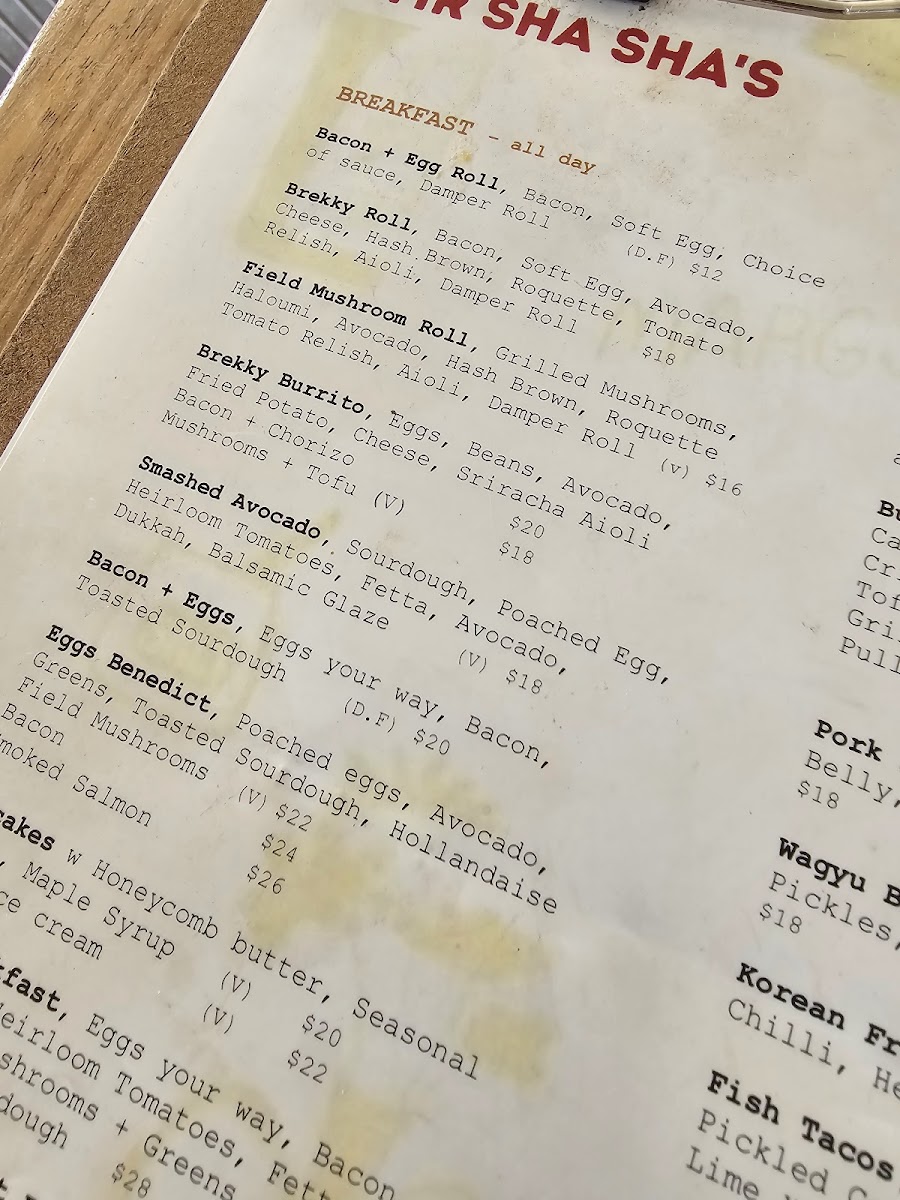 SHA SHA'S
BREAKFAST - all day
Bacon + Egg Roll, Bacon, Soft Egg, Choice
of sauce, Damper Roll (D.F) $12
Brekky Roll, Bacon, Soft Egg, Avocado,
Cheese, Hash Brown, Roquette, Tomato
Relish, Aioli, Damper Roll $18
Field Mushroom Roll, Grilled Mushrooms,
Haloumi, Avocado, Hash Brown, Roquette
Tomato Relish, Aioli, Damper Roll (v) $16
Brekky Burrito, Eggs, Beans, Avocado,
Fried Potato, Cheese, Sriracha Aioli
Bacon + Chorizo $20
Mushrooms + Tofu (V) $18
Smashed Avocado, Sourdough, Poached Egg,
Heirloom Tomatoes, Fetta, Avocado,
Dukkah, Balsamic Glaze (V) $18
Bacon + Eggs, Eggs your way, Bacon,
Toasted Sourdough (D.F) $20
Eggs Benedict, Poached eggs, Avocado,
Greens, Toasted Sourdough, Hollandaise
Field Mushrooms (V) $22
Bacon $24
Smoked Salmon $26
cakes w Honeycomb butter, Seasonal
, Maple Syrup (V) $20
ce cream (V) $22
kfast, Eggs your way, Bacon
Heirloom Tomatoes, Fett
shrooms + Greens
dough $28
Bu
Ca
Cr
Tof
Gri
Pull
Pork
Belly,
$18
Wagyu B
Pickles,
$18
Korean Fr
Chilli, He
Fish Tacos
Pickled
Lime